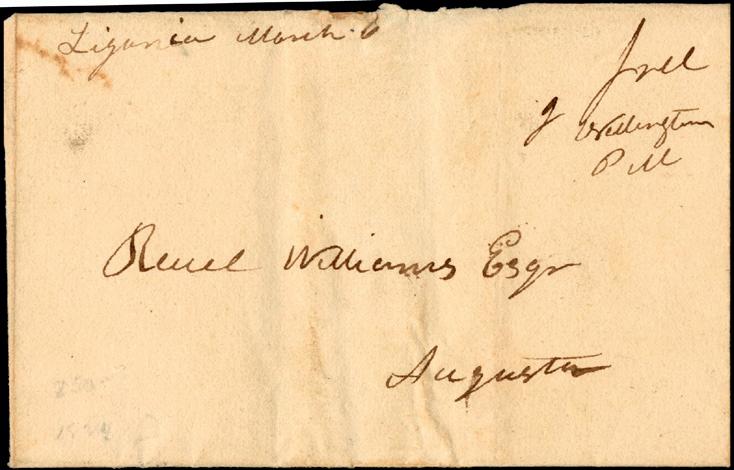 Ligonia March 6
free
J Wellington
P M
Reuel Williams Esqr
Augusta